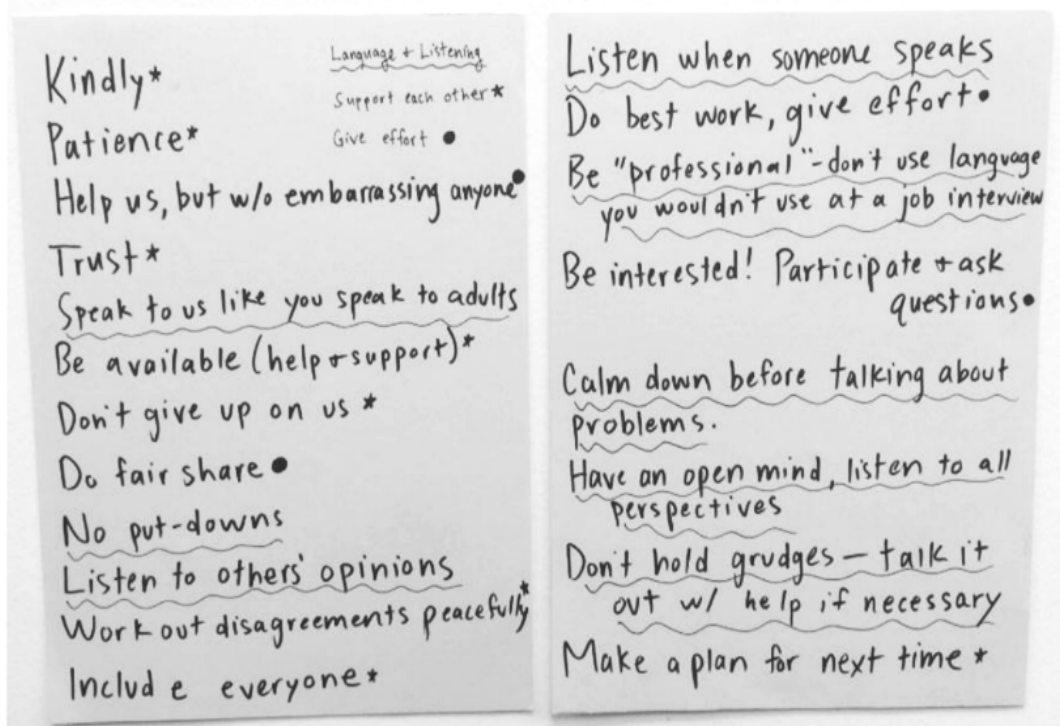 Kindly*
Language + Listening
Support each other*
Patience*
Give effort ●
Help us, but w/o embarrassing anyone●
Trust*
Speak to us like you speak to adults
Be available (help + support)*
Don't give up on us *
Do fair share ●
No put-downs
Listen to others' opinions
Work out disagreements peacefully*
Include everyone*
Listen when someone speaks
Do best work, give effort●
Be "professional" - don't use language
you wouldn't use at a job interview
Be interested! Participate + ask
questions●
Calm down before talking about
problems.
Have an open mind, listen to all
perspectives
Don't hold grudges — talk it
out w/ help if necessary
Make a plan for next time *